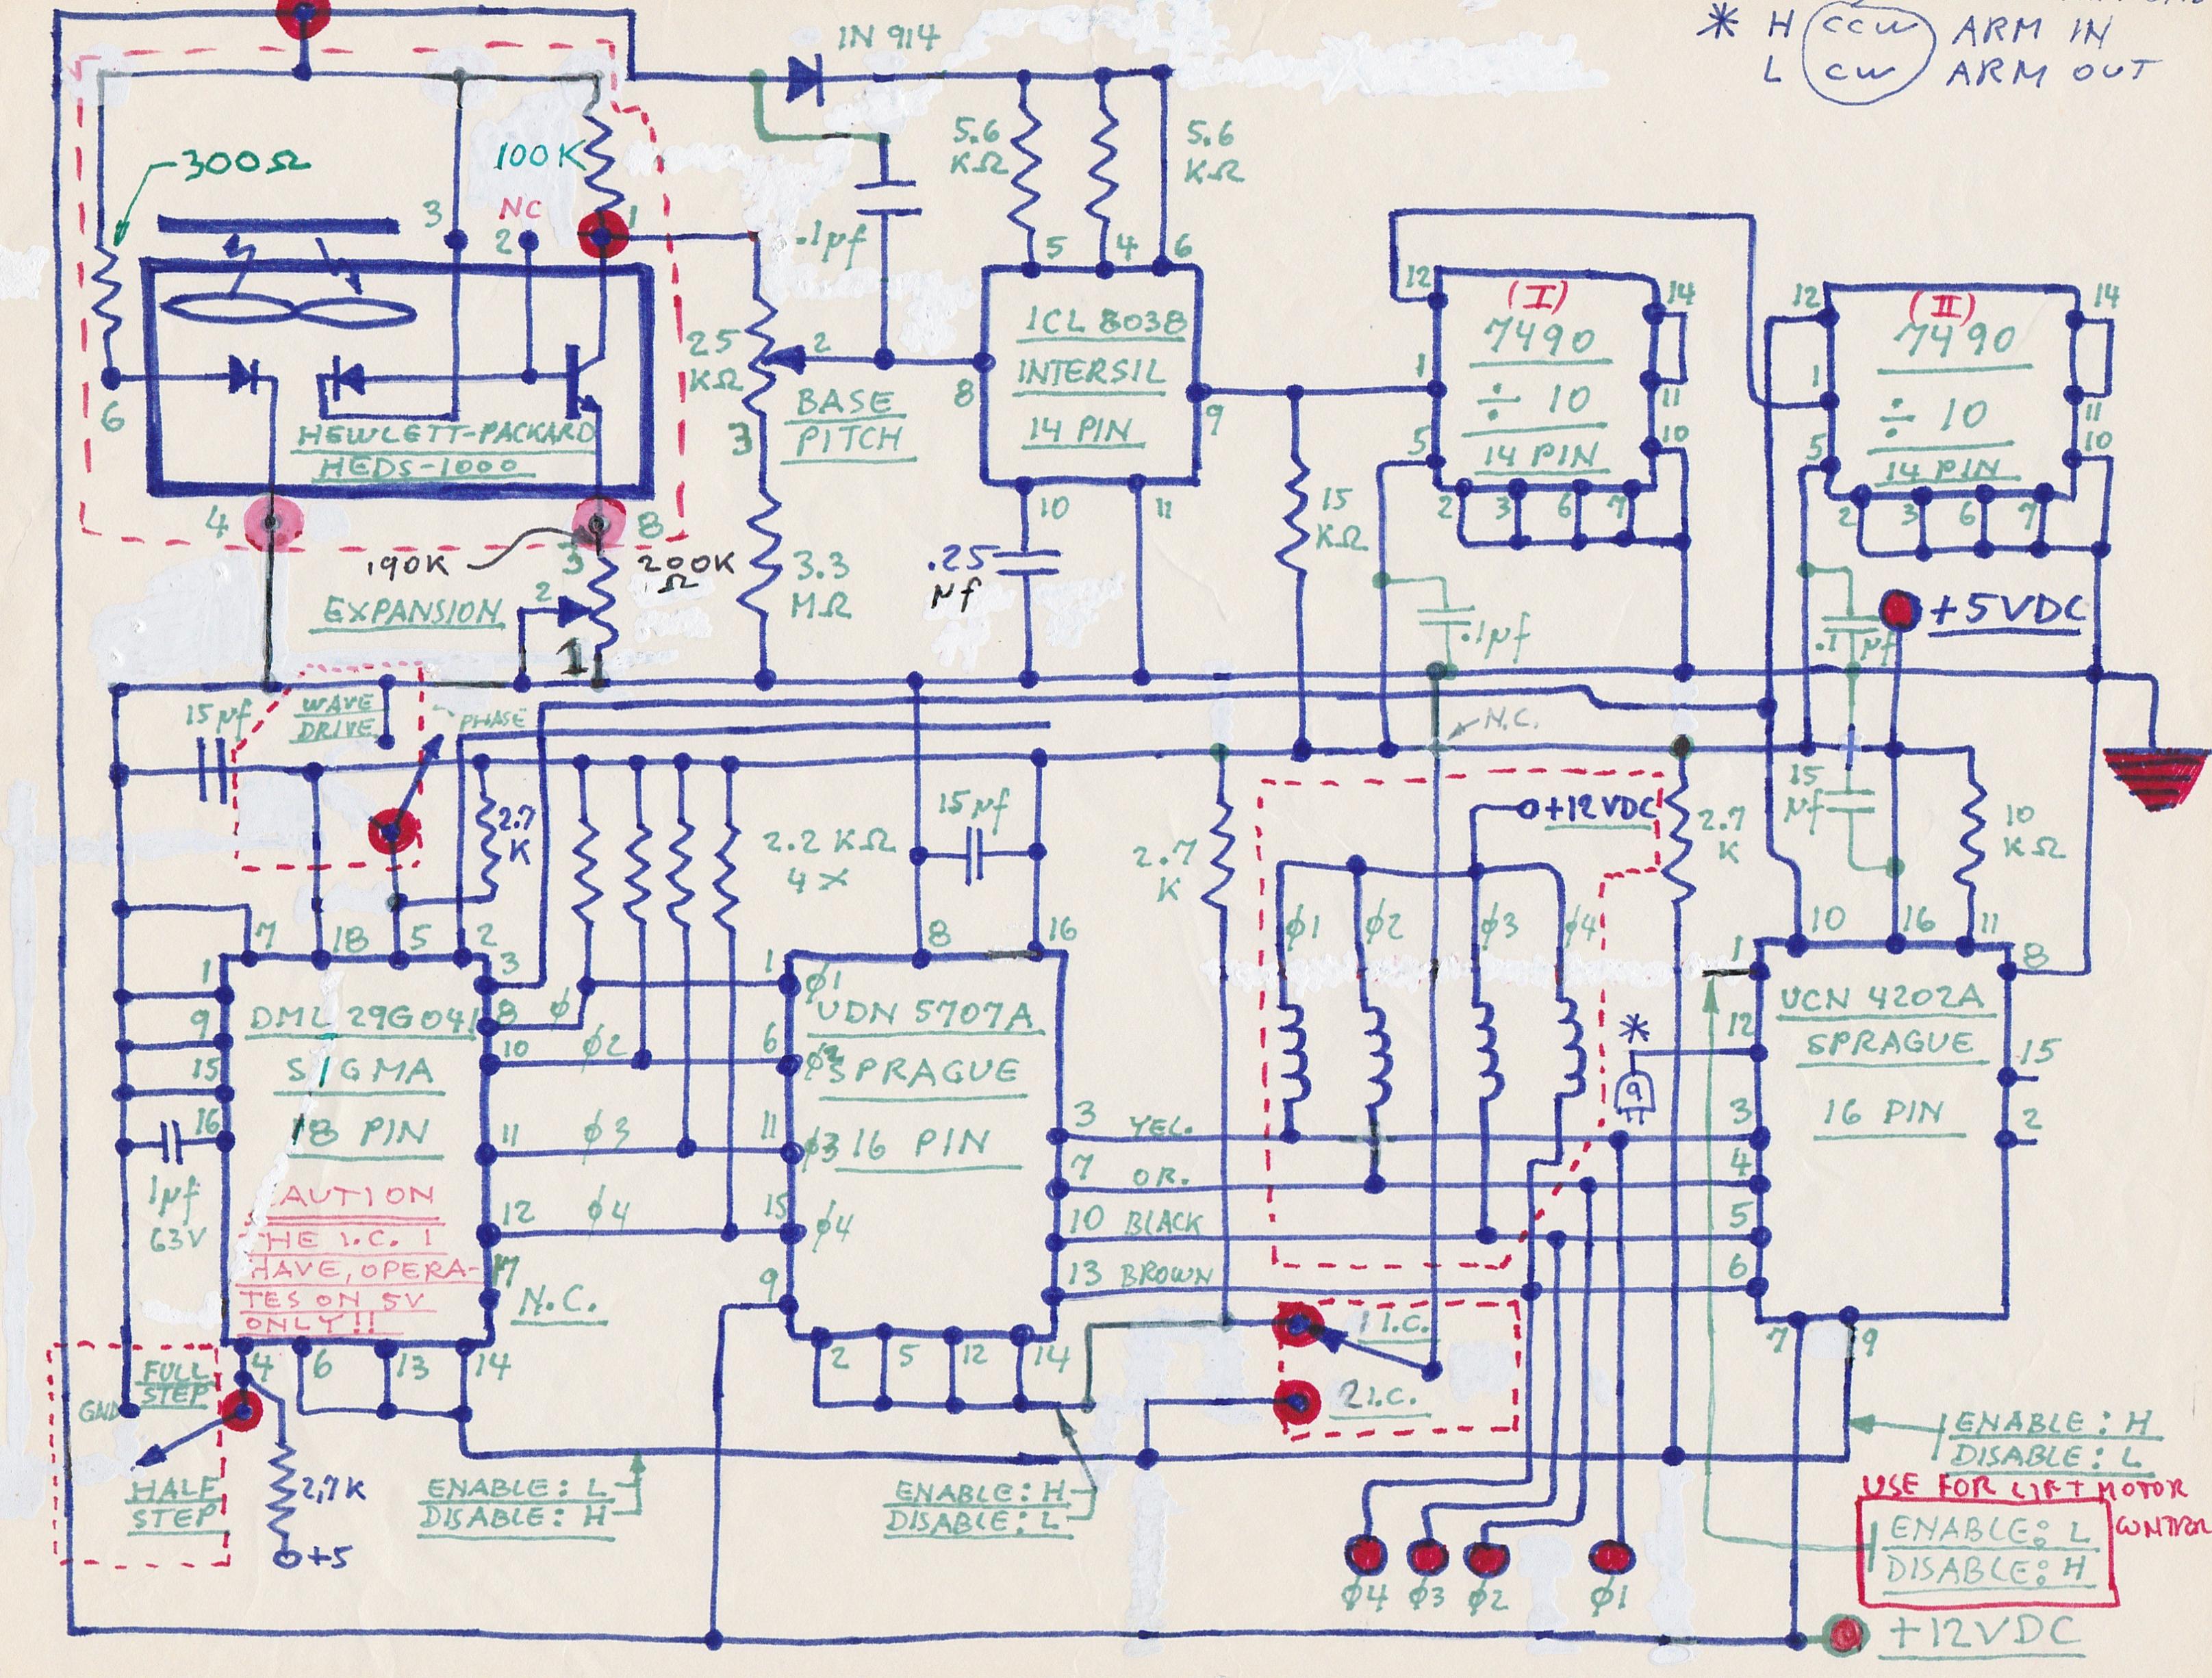 * H CCW ARM IN
L CW ARM OUT
IN 914
300Ω
100K
NC
3
2
1
5.6
KΩ
5.6
KΩ
.1µf
5
4
6
ICL 8038
INTERSIL
14 PIN
8
9
10
11
25
KΩ
2
3
BASE
PITCH
6
HEWLETT-PACKARD
HEDS-1000
4
8
190K
3
200K
Ω
2
EXPANSION
1
3.3
MΩ
.25
µf
15
KΩ
12
(I)
14
7490
÷ 10
14 PIN
1
11
5
10
2
3
6
7
.1µf
12
(II)
14
7490
÷ 10
14 PIN
1
11
5
10
2
3
6
7
.1 µf
+5VDC
15µf
WAVE
DRIVE
PHASE
N.C.
2.7
K
2.2 KΩ
4X
15µf
2.7
K
+12VDC
2.7
K
15
µf
10
KΩ
ϕ1
ϕ2
ϕ3
ϕ4
7
18
5
2
3
1
8
9
10
15
11
16
12
17
DML 29G041
SIGMA
18 PIN
CAUTION
THE I.C. I
HAVE, OPERA-
TES ON 5V
ONLY!!
N.C.
1µf
63V
ϕ
ϕ2
ϕ3
ϕ4
8
16
1
ϕ1
6
11
ϕ3
15
ϕ4
9
UDN 5707A
SPRAGUE
16 PIN
3
YEL.
7
OR.
10
BLACK
13
BROWN
2
5
12
14
10
16
11
1
8
UCN 4202A
SPRAGUE
16 PIN
*
12
15
3
2
4
5
6
9
7
9
1 I.C.
2 I.C.
FULL
STEP
GND
4
6
13
14
HALF
STEP
2,7K
+5
ENABLE: L
DISABLE: H
ENABLE: H
DISABLE: L
ENABLE: H
DISABLE: L
USE FOR LIFT MOTOR
CONTROL
ENABLE: L
DISABLE: H
ϕ4
ϕ3
ϕ2
ϕ1
+12VDC